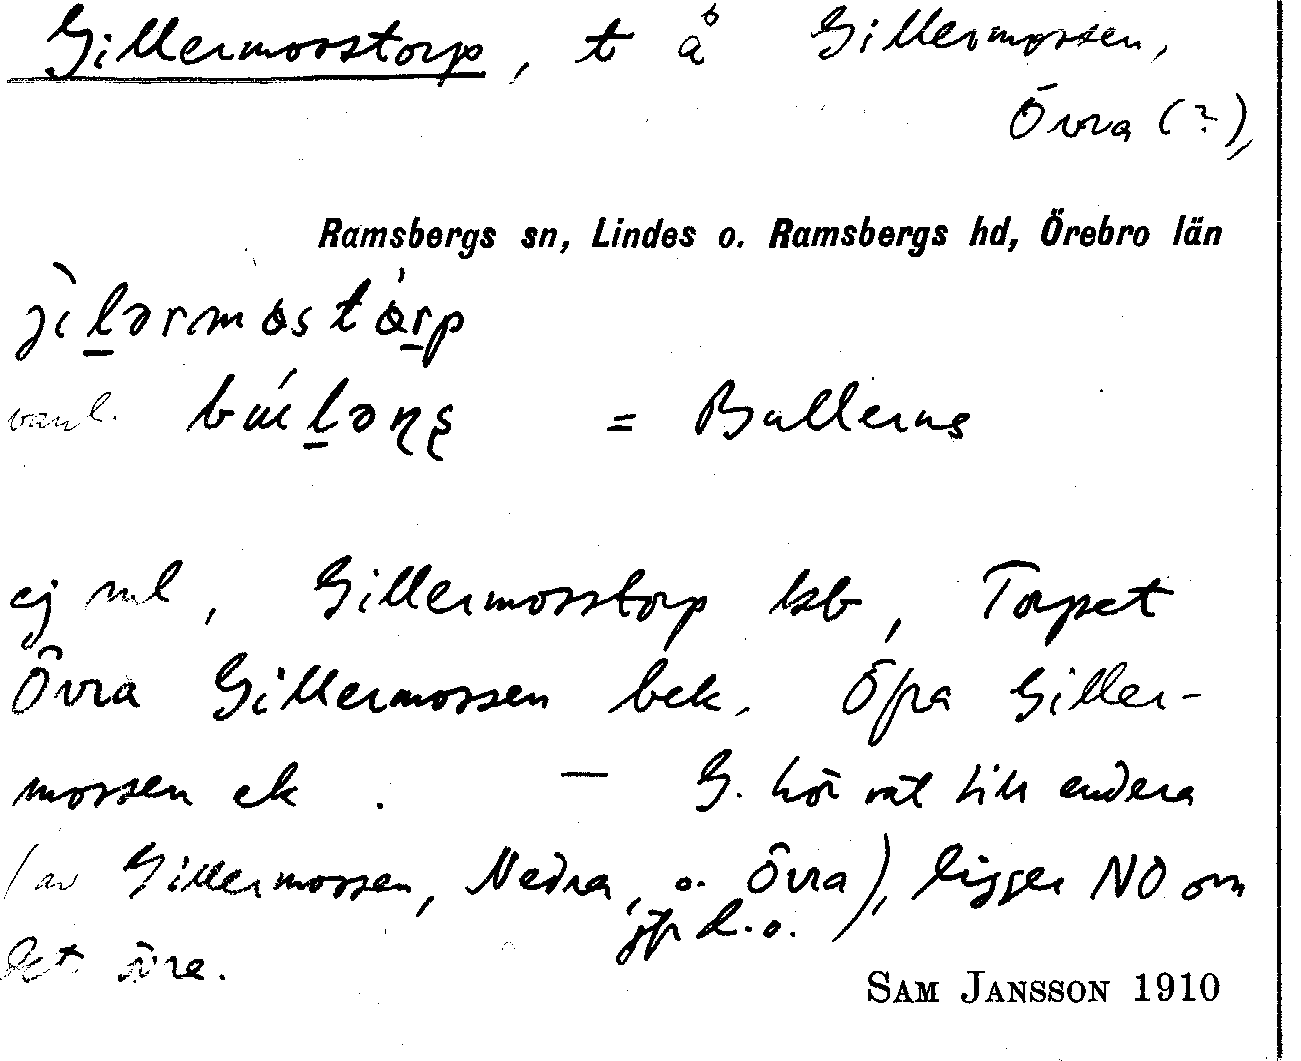 Gillermosstorp, t å Gillermossen,
Övra (?),
Ramsbergs sn, Lindes o. Ramsbergs hd, Örebro län
ji̠lərmɷstɷ́r̠p
vanl. búl̠əɳʂ = Bullerns
ej ml, Gillermosstorp kb, Torpet
Övra Gillermossen bek, Öfra Giller-
mossen ek. — G. hör väl till endera
(av Gillermossen, Nedra, o. Övra), ligger NO om
jfr d.o.
det övre.
SAM JANSSON 1910